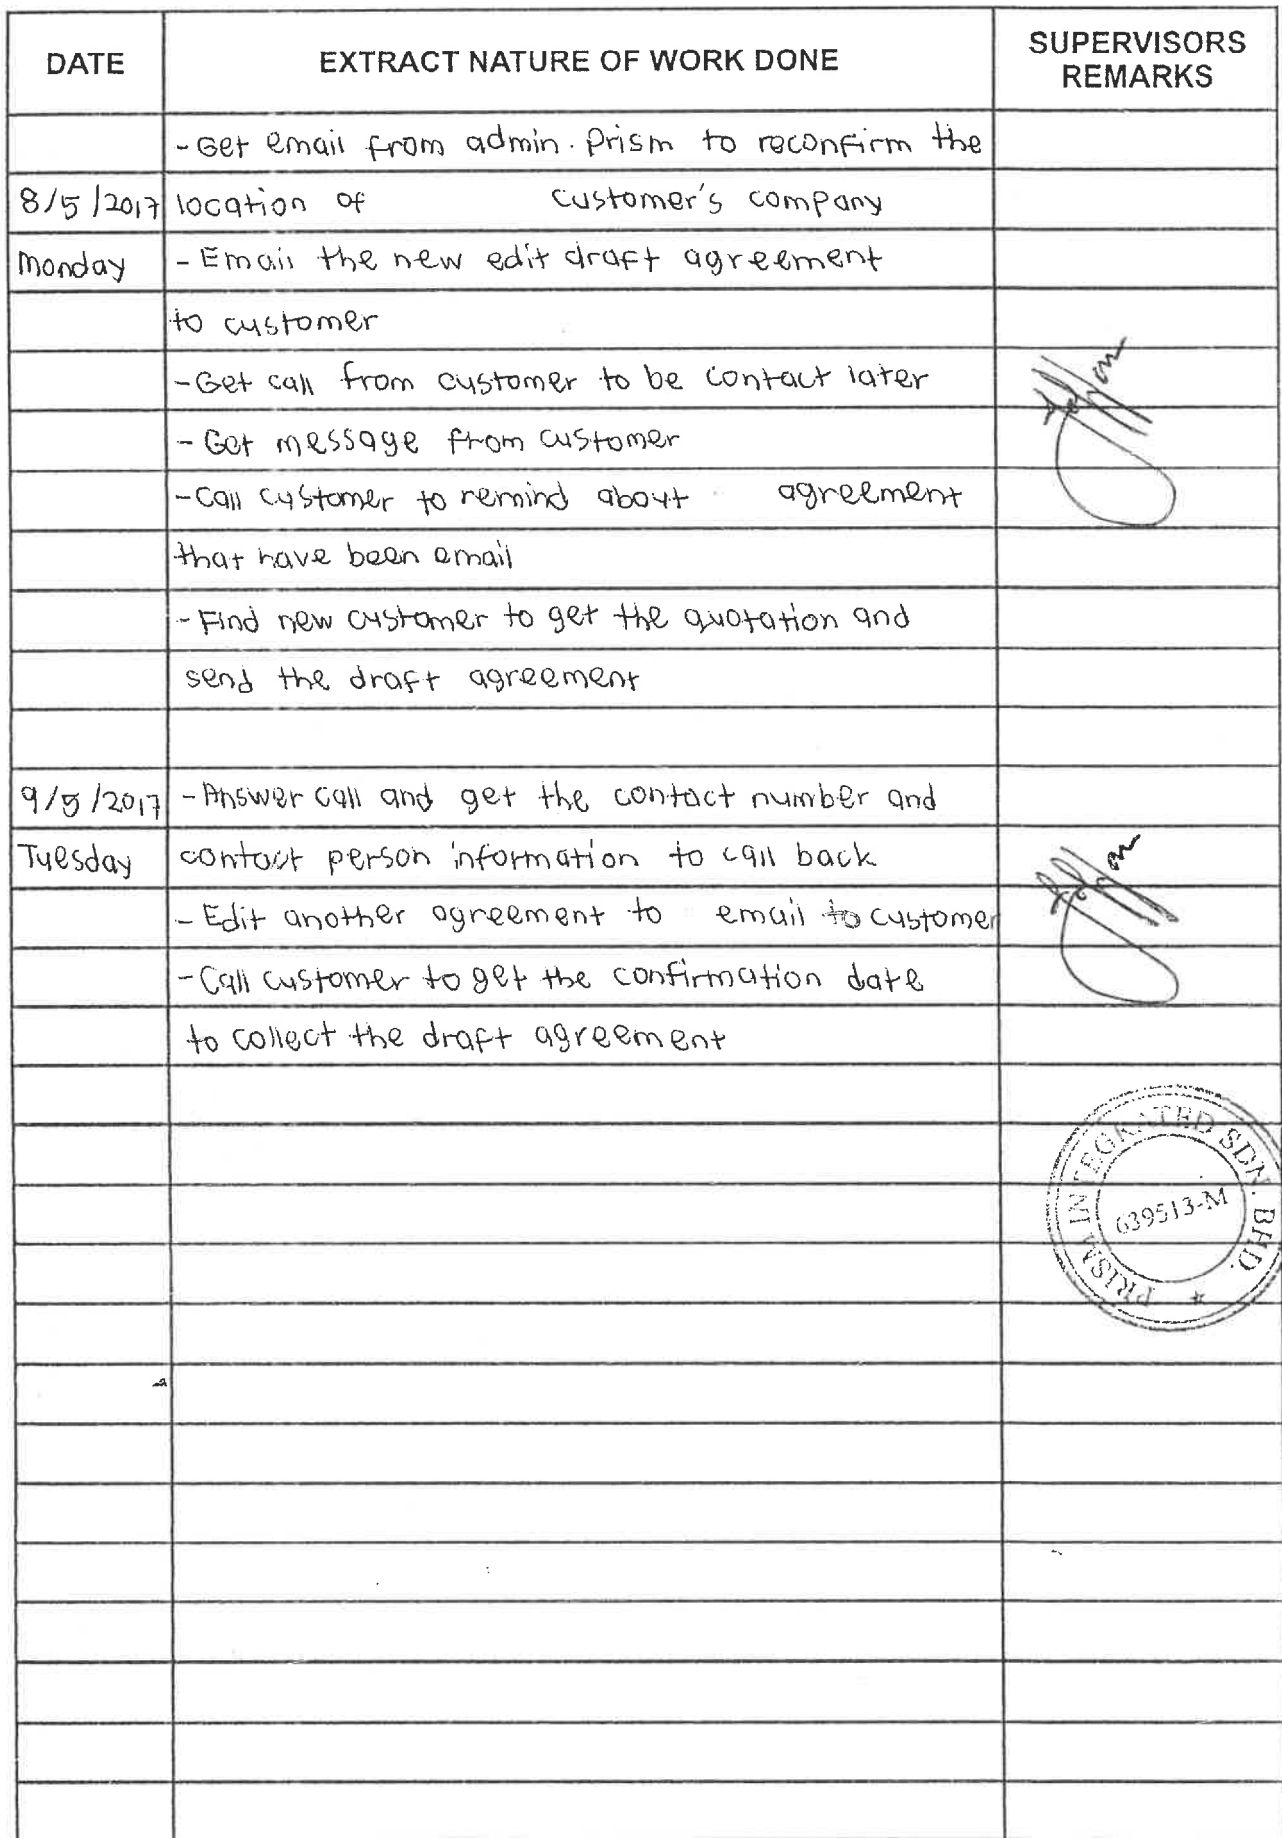 DATE EXTRACT NATURE OF WORK DONE SUPERVISORS REMARKS
- Get email from admin. Prism to reconfirm the
8/5/2017 location of customer's company
Monday - Email the new edit draft agreement
to customer
- Get call from customer to be contact later
- Get message from customer
- Call customer to remind about agreement
that have been email
- Find new customer to get the quotation and
send the draft agreement
9/5/2017 - Answer call and get the contact number and
Tuesday contact person information to call back
- Edit another agreement to email to customer
- Call customer to get the confirmation date
to collect the draft agreement
PRISM INTEGRATED SDN. BHD.
639513-M